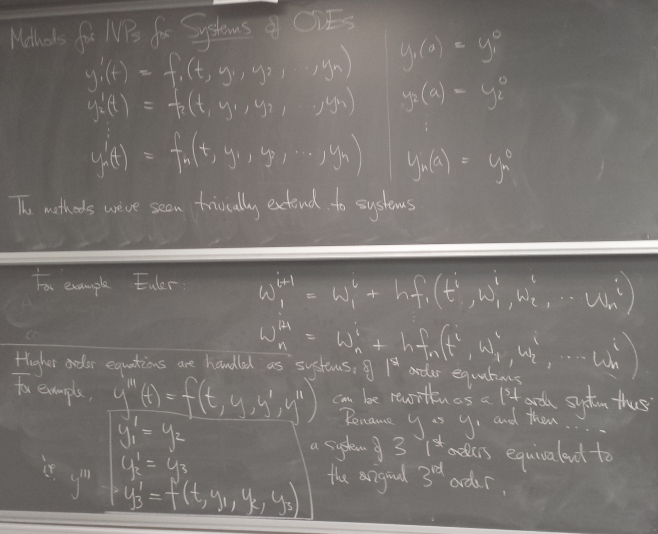 Methods for IVPs for Systems of ODEs
y₁'(t) = f₁(t, y₁, y₂, ..., yₙ) y₁(a) = y₁⁰
y₂'(t) = f₂(t, y₁, y₂, ..., yₙ) y₂(a) = y₂⁰
⋮ ⋮
yₙ'(t) = fₙ(t, y₁, y₂, ..., yₙ) yₙ(a) = yₙ⁰
The methods we've seen trivially extend to systems
For example Euler: w₁ⁱ⁺¹ = w₁ⁱ + hf₁(tⁱ, w₁ⁱ, w₂ⁱ, ... wₙⁱ)
wₙⁱ⁺¹ = wₙⁱ + hfₙ(tⁱ, w₁ⁱ, w₂ⁱ, .... wₙⁱ)
Higher order equations are handled as systems of 1st order equations
For example, y'''(t) = f(t, y, y', y'') can be rewritten as a 1st order system thus:
Rename y as y₁ and then ....
y₁' = y₂
y₂' = y₃
y''' y₃' = f(t, y₁, y₂, y₃)
a system of 3 1st orders equivalent to
the original 3rd order.